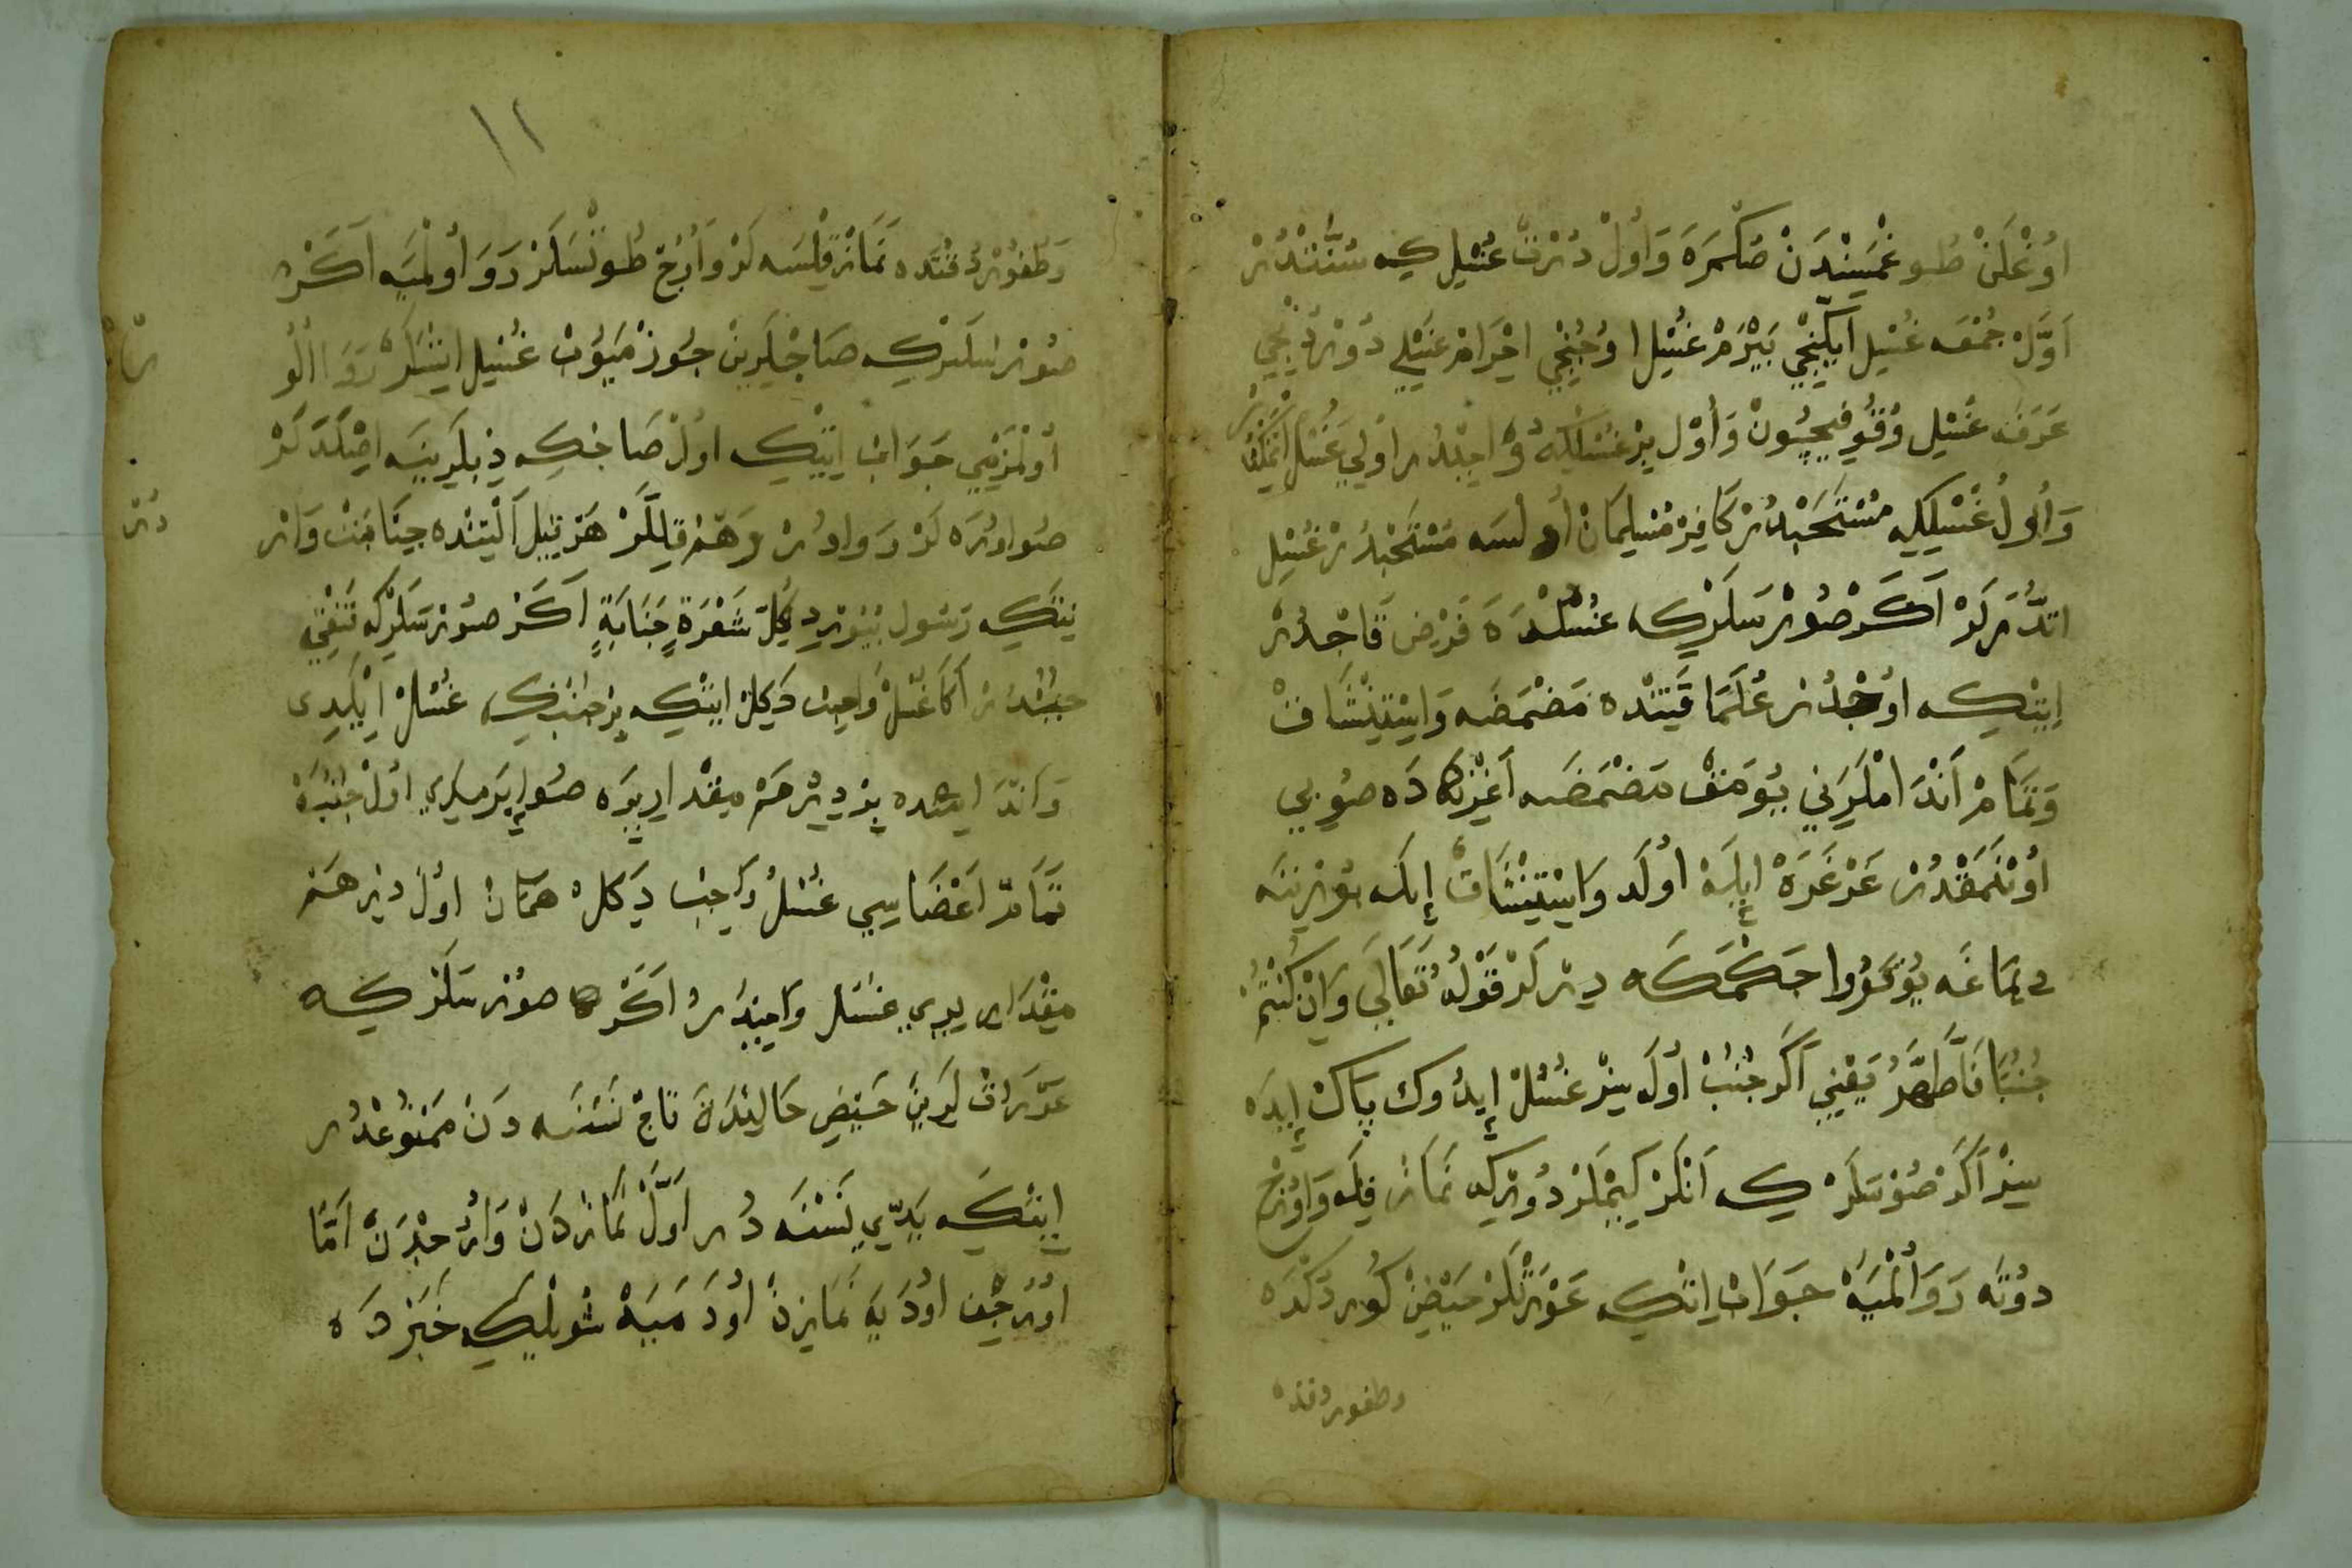 اُوغْلَنْ طُوغْمَسِنْدَنْ صُكْرَه وَاُولْ دُرْتْ غُسْلِ كِه سُنَّتْدُرْ
اَوَّلْ جُمْعَه غُسْلِ اِيكِنْجِي بَيْرَمْ غُسْلِ اوُچُنْجِي اِحْرَامْ غُسْلِي دُورْدُنْجِي
عَرَفَه غُسْلِ وُقُوفِيچُونْ وَاُولْ بِرْ غُسْلْكِه وَاجِبْدُر اُولِي غُسْلْ
وَاُولْ غُسْلِكِه مُسْتَحَبْدُرْ كَافِرْ مُسْلِمَانْ اُولْسَه مُسْتَحَبْدُرْ غُسْلِ
اَكَرْ صُورْسَلَرْكِه غُسْلْدَه فَرْضْ قَاچْدُرْ
اِيتْكِه اوُچْدُرْ عُلَمَا قَتِنْدَه مَضْمَضَه وَاِسْتِنْشَاقْ
وَتَمَامْ اَنْدَامْلَرِنِي يُومَقْ مَضْمَضَه اَغِزْكَادَه صُويِي
اُوينَمَقْدُرْ غَرْغَرَه اِيلَه اُولَه وَاِسْتِنْشَاقْ اِيلَه بُورْنِنَه
دِمَاغَه يُوقَرُوا چَكْمَكَه دِيرْلَرْ قَوْلُهُ تَعَالَى وَاِنْ كُنْتُمْ
جُنُبًا فَاطَّهَّرُ يَعْنِي اَكَرْ جُنُبْ اُولَه سِزْ غُسْلْ اِيدُوكْ پَاكْ اِيدَه
سِزْ اَكَرْ صُورْسَلَرْ كِه اَنْلَرْ كِيمْلَرْدُورْكِه نَمَازْ قِيلَه وَاوُرُجْ
دوُتَه رَوَا اُلْمَيَه جَوَابْ اِيتْكِه عَوْرَتْلَرْ حَيْضْ كُورْدُكْدَه
وطغوردقده
١٢
وَطُغُورْدُقْتَدَه نَمَازْ قِلْسَه لَرْ وَاُرُجْ طُوتْسَلَرْ رَوَا اُولْمَيَه اَكَرْ
صُورْسَلَرْكِه صَاچْلَرِينْ چُوزْمَيُوبْ غُسْلْ اِيتْسَلَرْ رَوَا اُلُو
اُولْمَزْمِي جَوَابْ اِيتْكِه اُولْ صَاچِكِه دِبْلَرِينَه اِصْلَدَلَرْ
صُو اِيرَه لَرْ رَوَادُرْ وَهَمْ قِيلَّلَرْ هَرْ قِيلْ اَلْتِنْدَه جَنَابَتْ وَارْ
نِتَكِه رَسُولْ بُيُوردِ كُلِّ شَعْرَةٍ جَنَابَةٍ اَكَرْ صُورْسَلَرْكِه قَنْغِي
جُنُبْدُرْ اَكَا غُسْلْ وَاجِبْ دَكِلْ اِيتْكِه بِرْ جُنُبْكِه غُسْلْ اِيْلَدِى
بِرْ دِرْهَمْ مِقْدَارِ يِرَه صُو اِيرَمَدِي اُولْ جُنُبَه
تَمَامْ اَعْضَاسِي غُسْلُ وَاجِبْ دَكِلْ هَمَانْ اُولْ دِرْهَمْ
مِقْدَارِ يِرِي غُسْلْ وَاجِبْدُرْ اَكَرْ صُورْسَلَرْكِه
عَوْرَاتْ لَرِينْ حَيْضِ حَالِنْدَه قَاچْ نَسْنَه دَنْ مَمْنُوعْدُرْ
اِيتْكِه يَدِّي نَسْنَه دُرْ اَوَّلْ نَمَازْدَنْ وَاُرُجْدَنْ اَمَّا
اوُرُجِنْ اُودَيَه نَمَازِنْ اُودَمَيَه شُويْلَه كِه خَبَرْدَه